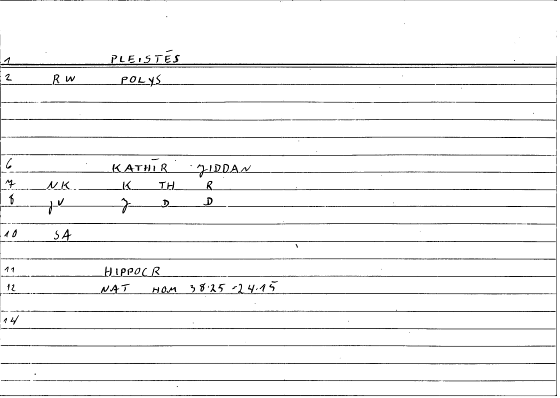 1 PLEISTĒS
2 RW POLYS
6 KATHĪR JIDDAN
7 NK K TH R
8 JV J D D
10 SA
11 HIPPOCR
12 NAT HOM 38.25-24.15
14